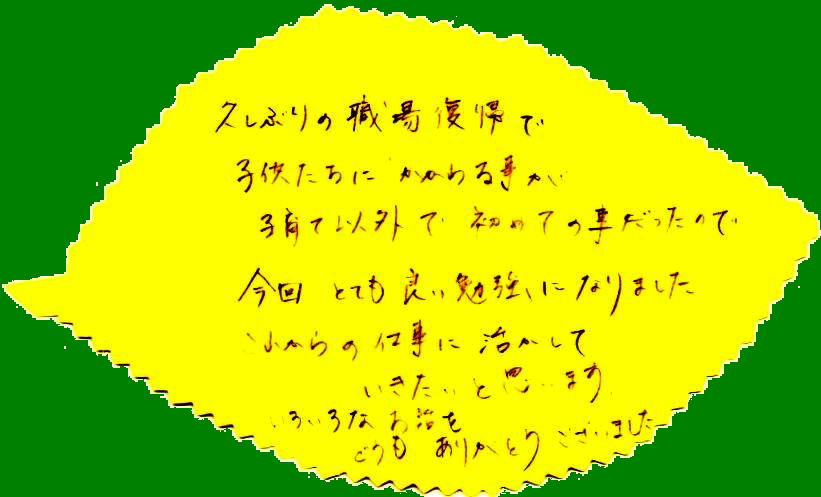 久しぶりの職場復帰で
子供たちにかかわる事が
子育て以外で初めての事だったので
今回とても良い勉強になりました
これからの仕事に活かして
いきたいと思います
いろいろなお話を
どうもありがとうございました